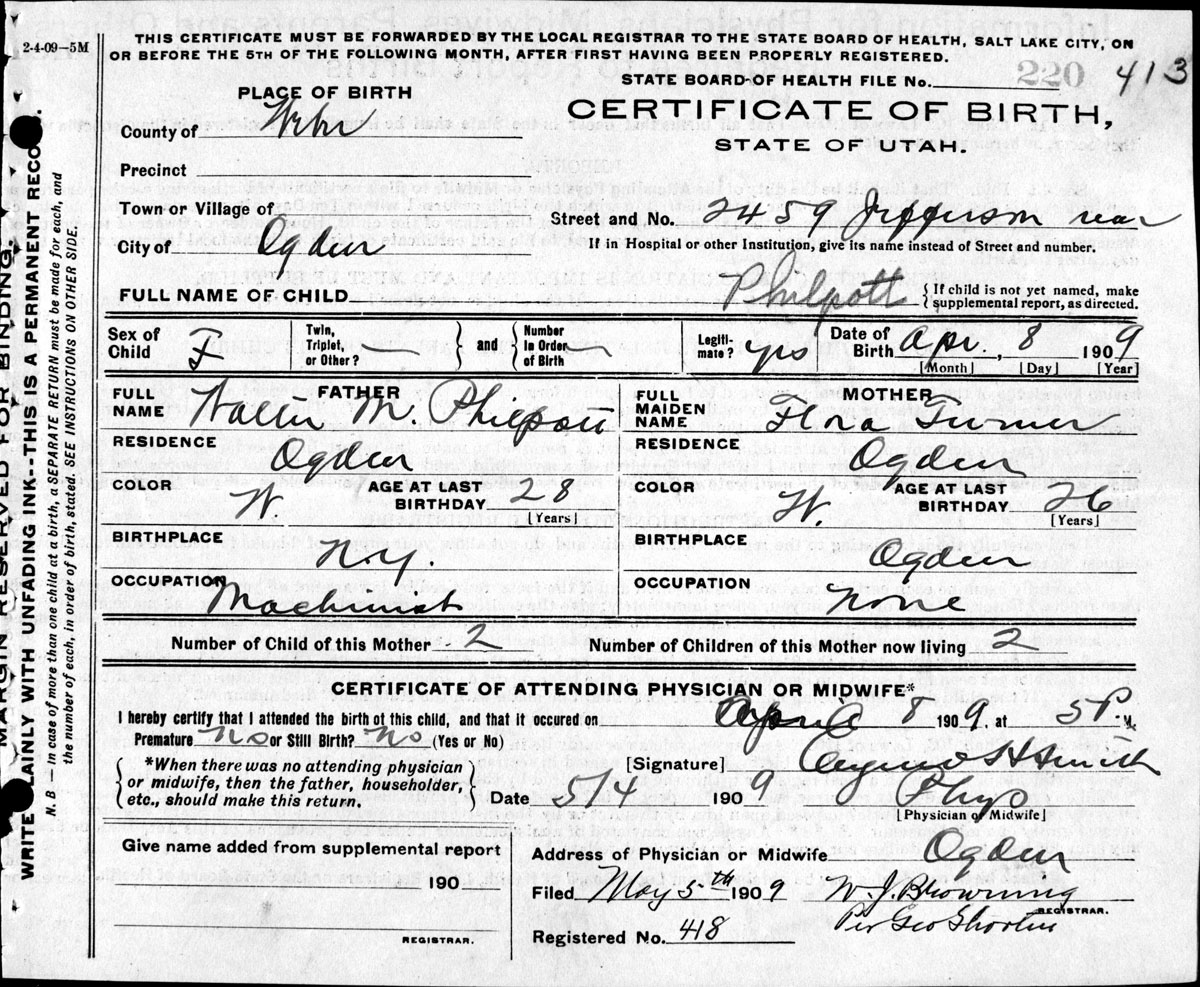 2-4-09-5M
THIS CERTIFICATE MUST BE FORWARDED BY THE LOCAL REGISTRAR TO THE STATE BOARD OF HEALTH, SALT LAKE CITY, ON
OR BEFORE THE 5TH OF THE FOLLOWING MONTH, AFTER FIRST HAVING BEEN PROPERLY REGISTERED.
STATE BOARD OF HEALTH FILE No. 220 413
PLACE OF BIRTH
CERTIFICATE OF BIRTH,
STATE OF UTAH.
County of Web
Precinct
Town or Village of
Street and No. 2459 Jefferson rear
City of Ogden
If in Hospital or other Institution, give its name instead of Street and number.
FULL NAME OF CHILD Philpott { If child is not yet named, make supplemental report, as directed.
Sex of Child F Twin, Triplet, or Other? } and { Number in Order of Birth Legiti-mate? yes Date of Birth Apr. 8 1909
[Month] [Day] [Year]
FATHER MOTHER
FULL NAME Walter M. Philpott FULL MAIDEN NAME Flora Turner
RESIDENCE Ogden RESIDENCE Ogden
COLOR W. AGE AT LAST BIRTHDAY 28 [Years] COLOR W. AGE AT LAST BIRTHDAY 26 [Years]
BIRTHPLACE N.Y. BIRTHPLACE Ogden
OCCUPATION Machinist OCCUPATION None
Number of Child of this Mother 2 Number of Children of this Mother now living 2
CERTIFICATE OF ATTENDING PHYSICIAN OR MIDWIFE*
I hereby certify that I attended the birth of this child, and that it occured on April 8 1909, at 5 P. M.
Premature No or Still Birth? No (Yes or No)
{ *When there was no attending physician or midwife, then the father, householder, etc., should make this return. }
[Signature] H Smith
Date 5/4 1909 Phys
[Physician or Midwife]
Give name added from supplemental report
190
REGISTRAR.
Address of Physician or Midwife Ogden
Filed May 5th 1909 W. J. Browning
REGISTRAR.
Per Geo
Registered No. 418
MARGIN RESERVED FOR BINDING.
WRITE PLAINLY WITH UNFADING INK--THIS IS A PERMANENT RECORD.
N. B — In case of more than one child at a birth, a SEPARATE RETURN must be made for each, and
the number of each, in order of birth, stated. SEE INSTRUCTIONS ON OTHER SIDE.